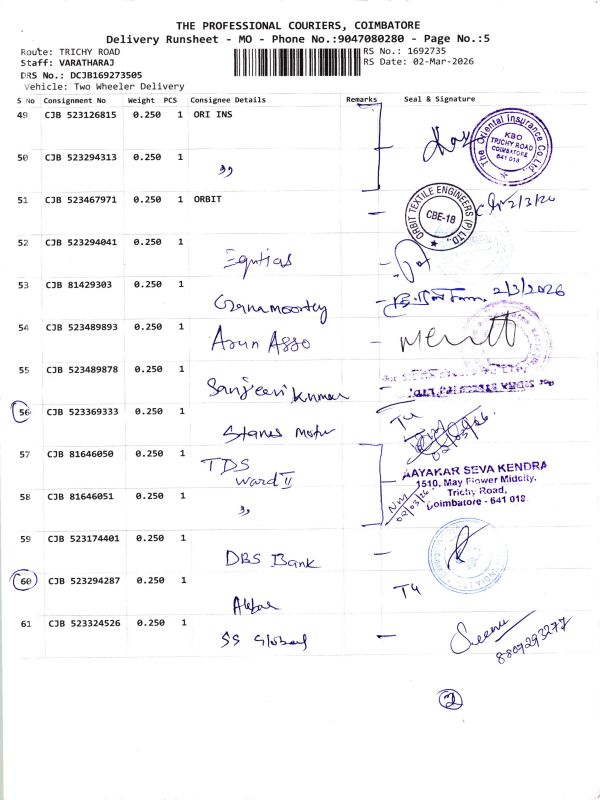 THE PROFESSIONAL COURIERS, COIMBATORE
Delivery Runsheet - MO - Phone No.:9047080280 - Page No.:5
Route: TRICHY ROAD
RS No.: 1692735
Staff: VARATHARAJ
RS Date: 02-Mar-2026
DRS No.: DCJB169273505
Vehicle: Two Wheeler Delivery
S No Consignment No Weight PCS Consignee Details Remarks Seal & Signature
49 CJB 523126815 0.250 1 ORI INS
The Oriental Insurance Co Ltd.
KBO
TRICHY ROAD
COIMBATORE
641 018
50 CJB 523294313 0.250 1 "
51 CJB 523467971 0.250 1 ORBIT
ORBIT TEXTILE ENGINEERS (P) LTD.,
CBE-18
2/3/26
52 CJB 523294041 0.250 1
Equitas
53 CJB 81429303 0.250 1
Gnanamoorthy
2/3/2026
54 CJB 523489893 0.250 1
Arun Asso
55 CJB 523489878 0.250 1
Sanjeevi Kumar
56 CJB 523369333 0.250 1
Stanes Motor
T4
02/03/26
57 CJB 81646050 0.250 1
TDS
Ward II
AAYAKAR SEVA KENDRA
1510, May Flower Midcity,
Trichy Road,
Coimbatore - 641 018
02/03/26
58 CJB 81646051 0.250 1 "
59 CJB 523174401 0.250 1
DBS Bank
60 CJB 523294287 0.250 1
T4
61 CJB 523324526 0.250 1
SS Global
8807293277
2